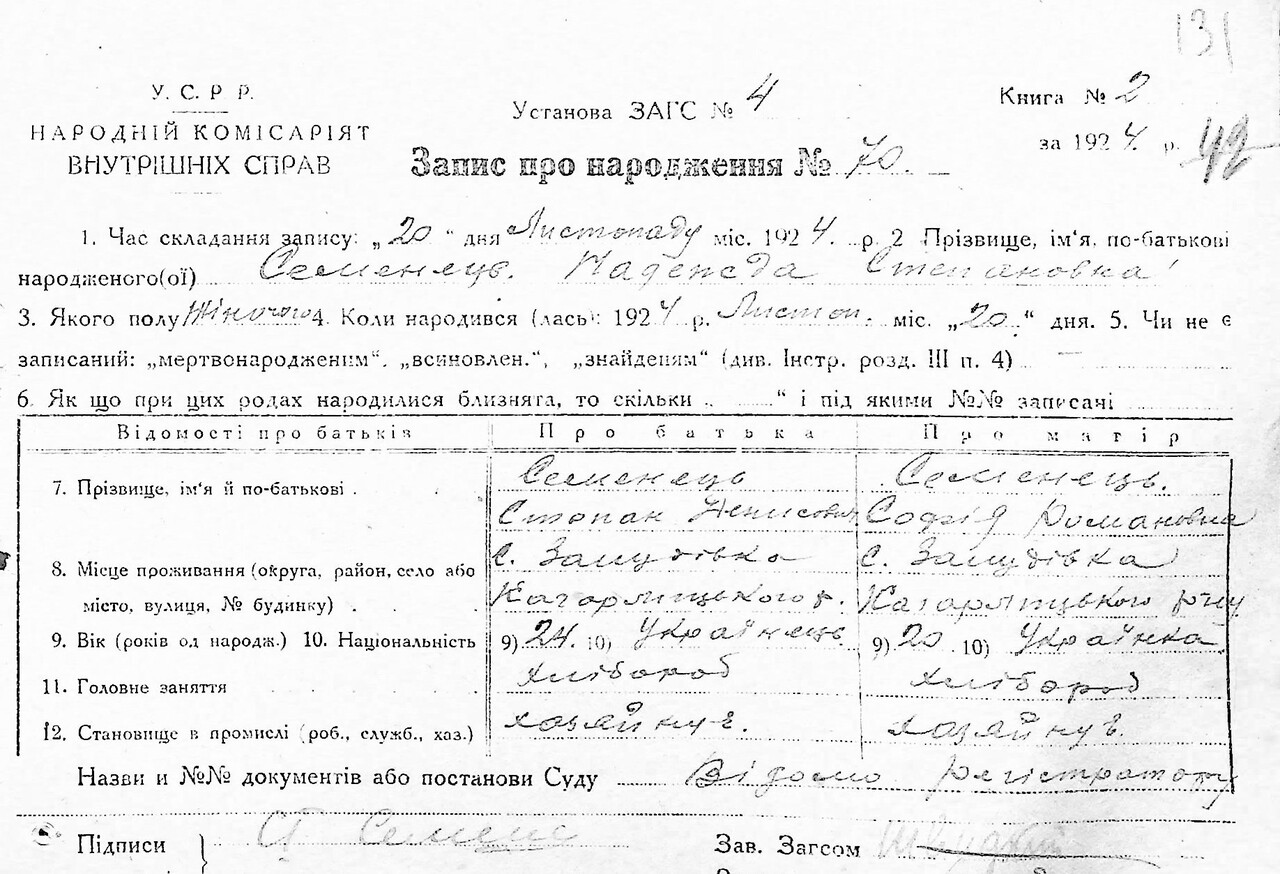 131
У. С. Р. Р.
НАРОДНІЙ КОМІСАРІЯТ
ВНУТРІШНІХ СПРАВ
Установа ЗАГС № 4
Книга № 2
за 1924 р. 42
Запис про народження № 70.
1. Час складання запису: „20“ дня Листопаду міс. 1924. р. 2 Прізвище, ім'я, по-батькові
народженого(ої) Семенець. Надежда Степановна
3. Якого полу Жіночого 4. Коли народився (лась): 1924 р. Листоп. міс. „20“ дня. 5. Чи не є
записаний: „мертвонародженим“, „всиновлен.“, „знайденям“ (див. Інстр. розд. III п. 4)
6. Як що при цих родах народилися близнята, то скільки „ “ і під якими №№ записані
Відомості про батьків Про батька Про матір
7. Прізвище, ім'я й по-батькові . Семенець Семенець.
Степан Денисович Софія Романовна
8. Місце проживання (округа, район, село або с. с.
місто, вулиця, № будинку) . Кагарлицького р. Кагарлицького р-ну
9. Вік (років од народж.) 10. Національність 9) 24. 10) Українець 9) 20 . 10) Українка
11. Головне заняття Хлібороб Хлібороб
12. Становище в промислі (роб., служб., хаз.) хазяйнує. хазяйнує.
Назви и №№ документів або постанови Суду Відомо регістратору
Підписи Ст Семене
Зав. Загсом